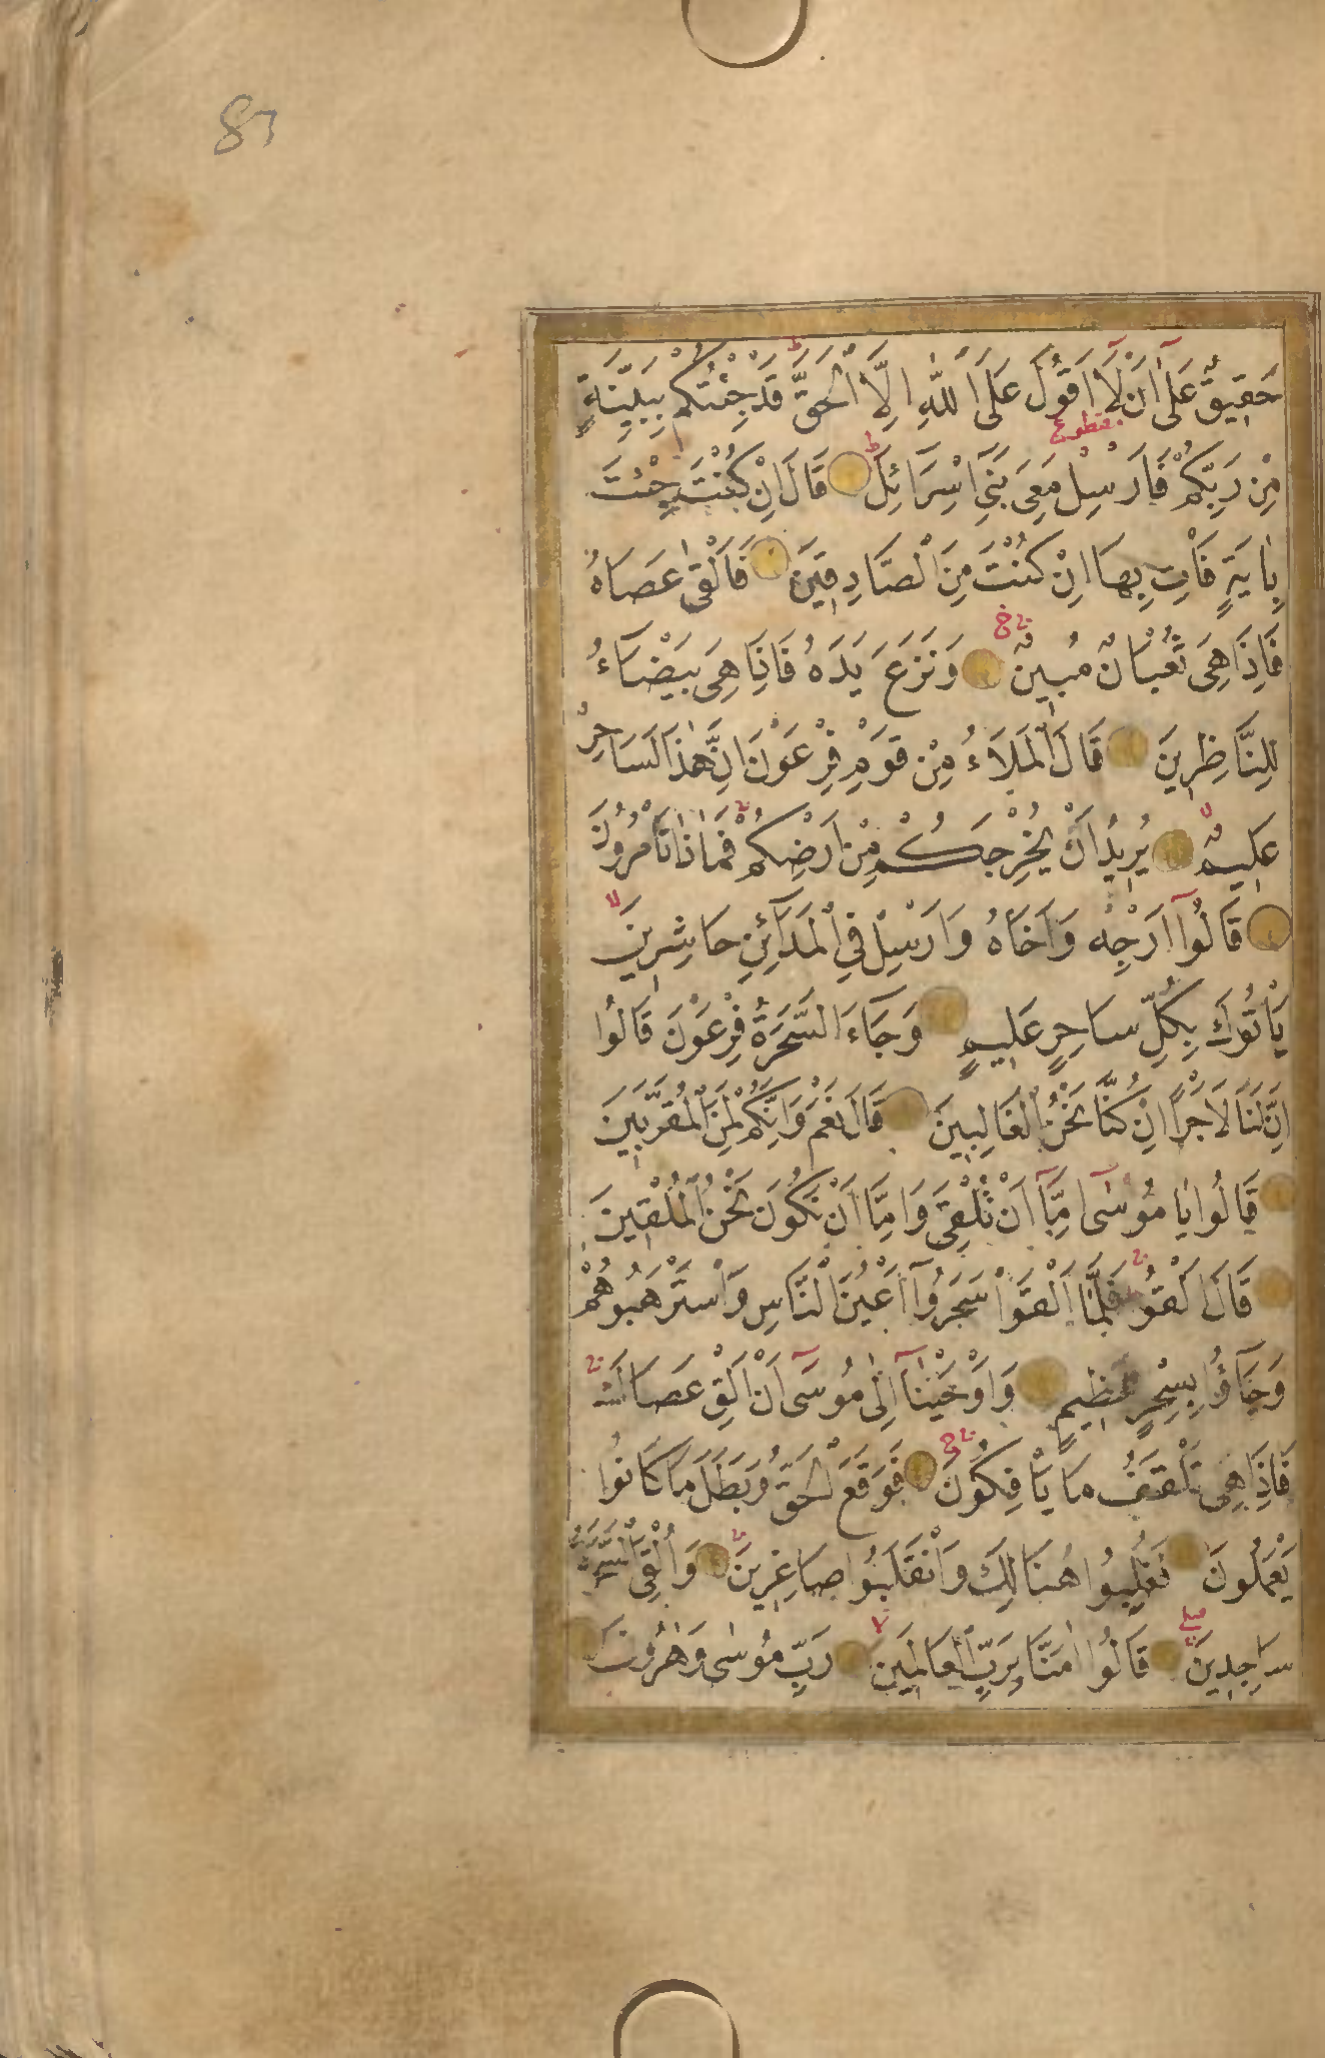 87
حَقِيقٌ عَلَىٰٓ اَنْ لَٓا اَقُولَ عَلَى اللّٰهِ اِلَّا الْحَقَّ ط قَدْ جِئْتُكُمْ بِبَيِّنَةٍ
مقطوع
مِنْ رَبِّكُمْ فَاَرْسِلْ مَعِىَ بَنِىٓ اِسْرَائِلَ ط قَالَ اِنْ كُنْتَ جِئْتَ
بِاٰيَةٍ فَاْتِ بِهَا اِنْ كُنْتَ مِنَ الْصَّادِقِينَ فَاَلْقٰى عَصَاهُ
فَاِذَا هِىَ ثُعْبَانٌ مُبِينٌ وَنَزَعَ يَدَهُ فَاِذَا هِىَ بَيْضَاءُ
لِلنَّاظِرِينَ قَالَ الْمَلَاءُ مِنْ قَوْمِ فِرْعَوْنَ اِنَّ هٰذَا لَسَاحِرٌ
عَلِيمٌ لا يُرِيدُ اَنْ يُخْرِجَكُمْ مِنْ اَرْضِكُمْ فَمَاذَا تَاْمُرُونَ
قَالُوٓا اَرْجِهْ وَاَخَاهُ وَاَرْسِلْ فِى الْمَدَآئِنِ حَاشِرِينَ لا
يَاْتُوكَ بِكُلِّ سَاحِرٍ عَلِيمٍ وَجَآءَ السَّحَرَةُ فِرْعَوْنَ قَالُوا
اِنَّ لَنَا لَاَجْرًا اِنْ كُنَّا نَحْنُ الْغَالِبِينَ قَالَ نَعَمْ وَاِنَّكُمْ لَمِنَ الْمُقَرَّبِينَ
قَالُوا يَا مُوسٰٓى اِمَّآ اَنْ تُلْقِىَ وَاِمَّآ اَنْ نَكُونَ نَحْنُ الْمُلْقِينَ
قَالَ اَلْقُوا فَلَمَّا اَلْقَوْا سَحَرُوٓا اَعْيُنَ الْنَّاسِ وَاسْتَرْهَبُوهُمْ
وَجَآؤُا بِسِحْرٍ عَظِيمٍ وَاَوْحَيْنَآ اِلٰى مُوسَىٓ اَنْ اَلْقِ عَصَاكَ
فَاِذَا هِىَ تَلْقَفُ مَا يَاْفِكُونَ فَوَقَعَ الْحَقُّ وَبَطَلَ مَا كَانُوا
يَعْمَلُونَ فَغُلِبُوا هُنَالِكَ وَانْقَلَبُوا صَاغِرِينَ وَاُلْقِىَ السَّحَرَةُ
سَاجِدِينَ قَالُوا اٰمَنَّا بِرَبِّ الْعَالَمِينَ لا رَبِّ مُوسٰى وَهٰرُونَ